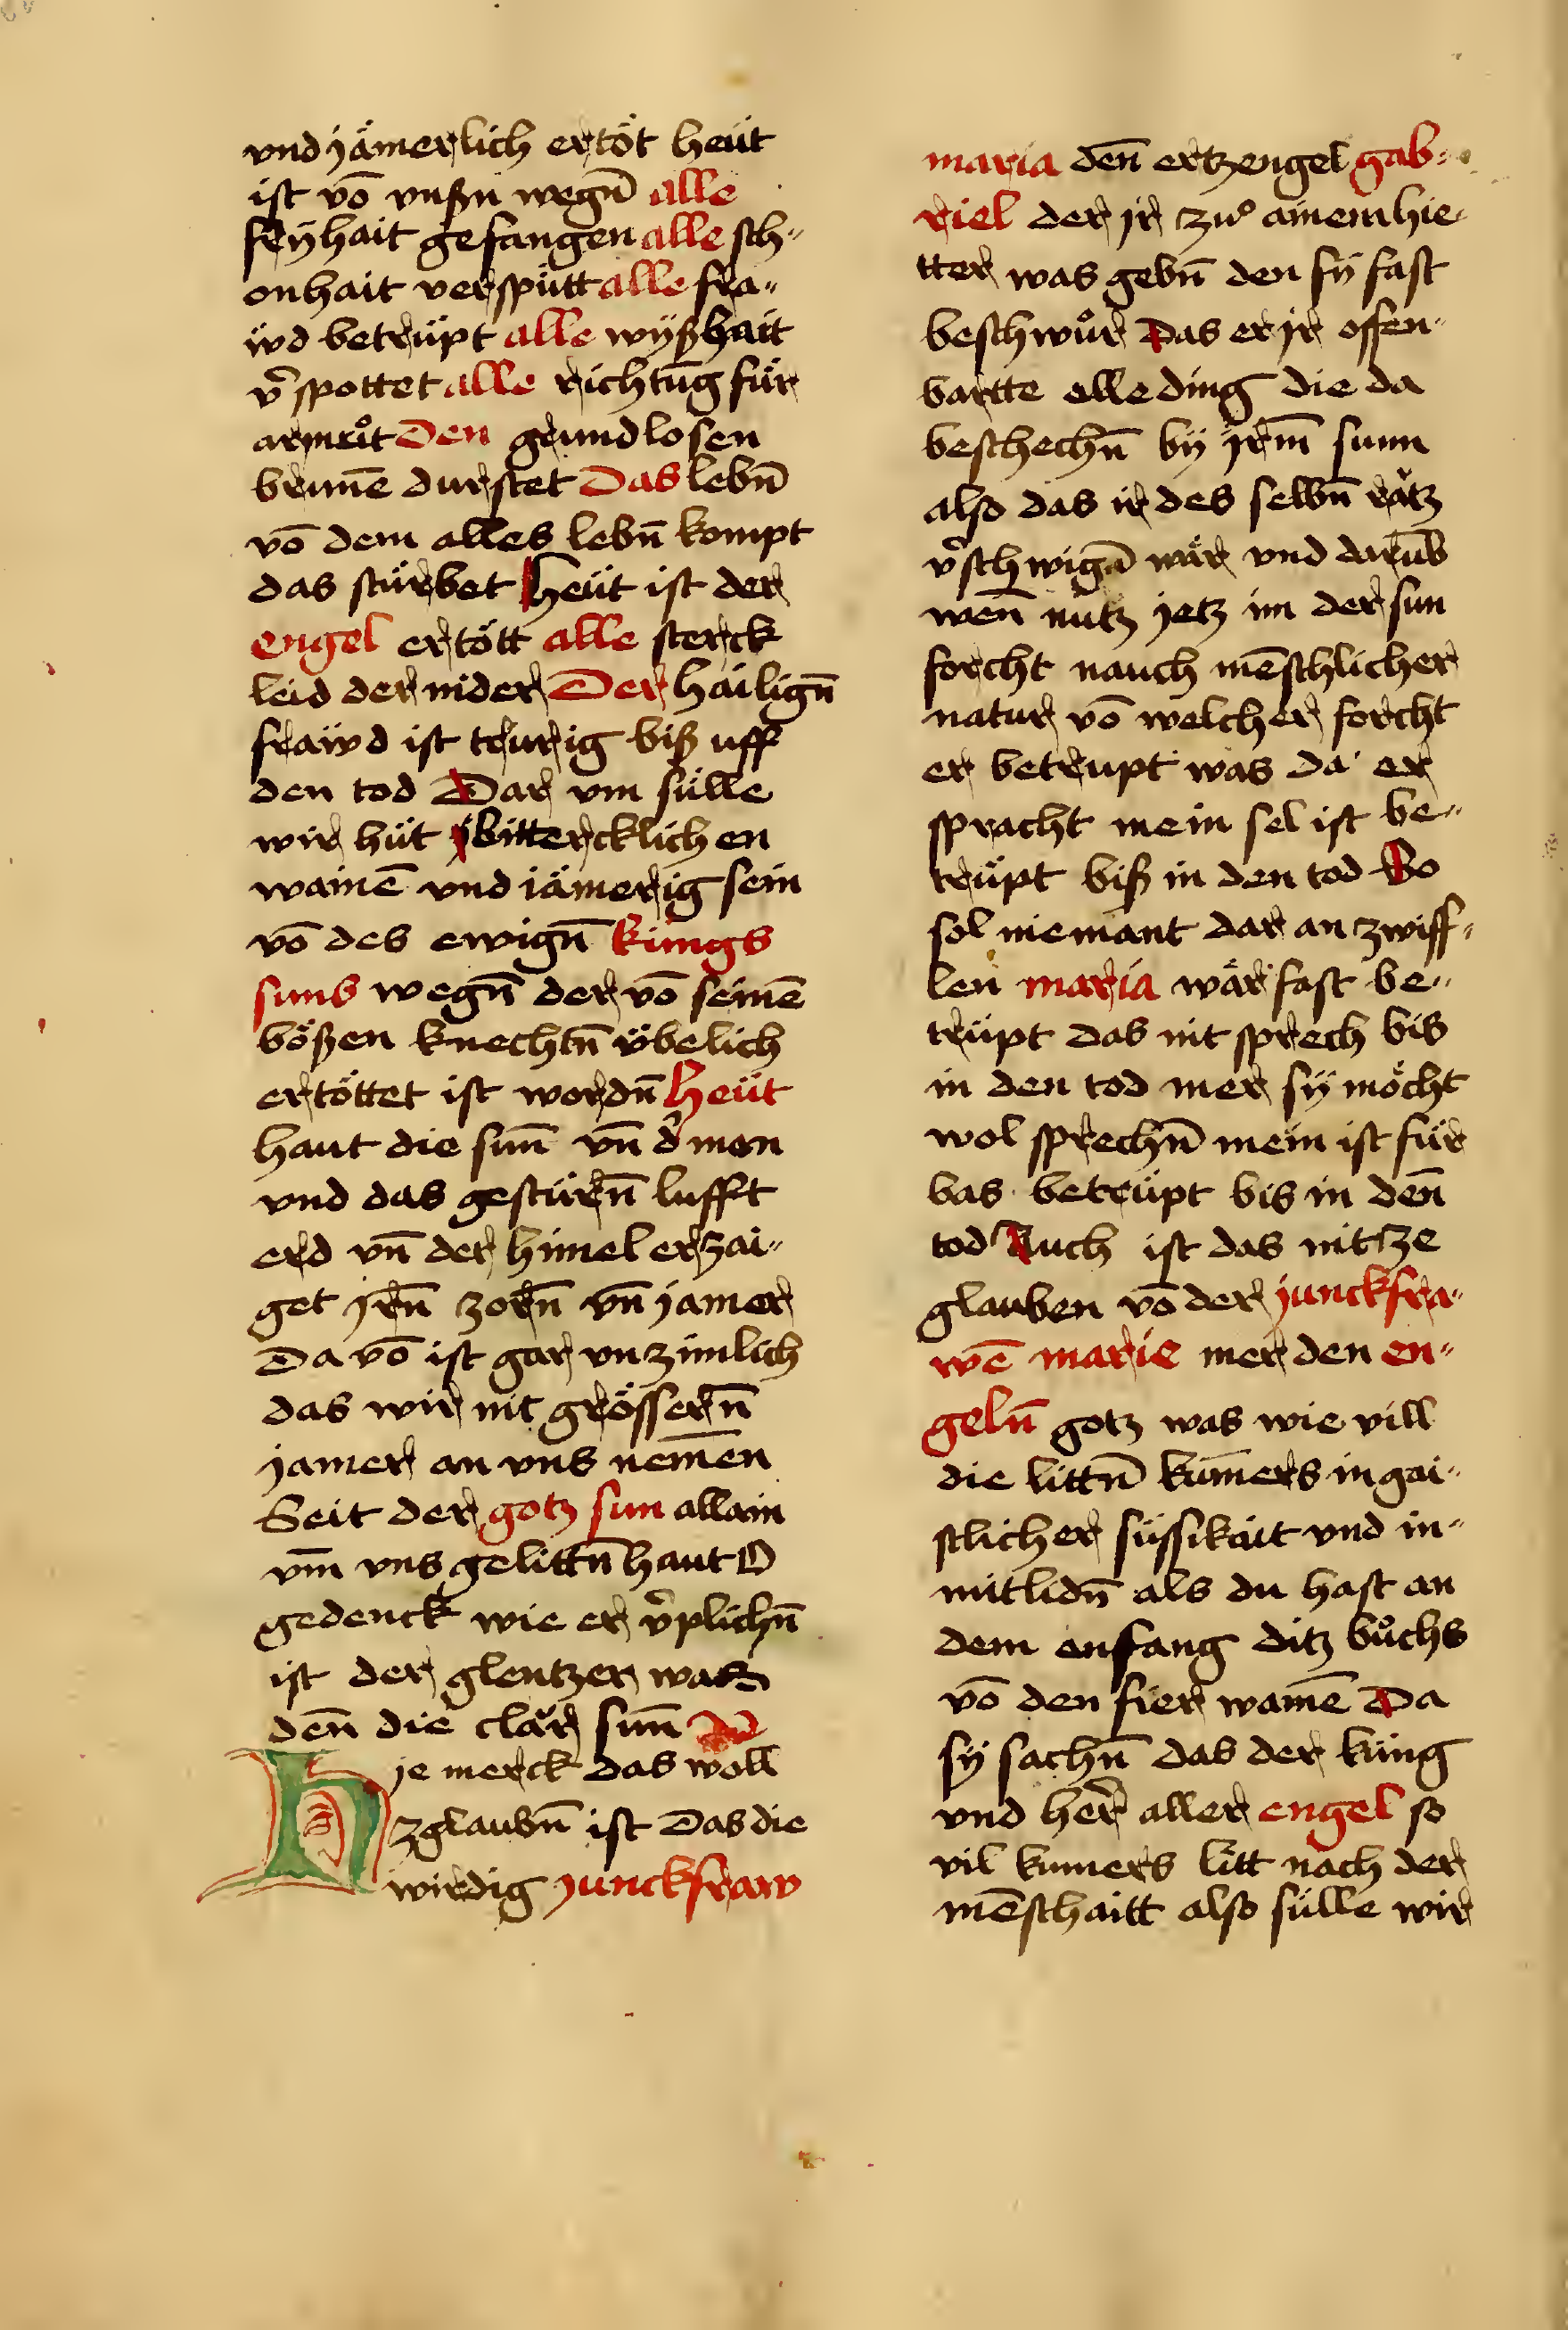 vnd jämerlich ertöt heüt
ist vō vnßn wegn̄ alle
frÿhait gefangen alle sch„
onhait verspütt alle fra„
ẅd betrüpt alle wÿßhait
v᷑spottet alle richtūg für
armuͦt Den grundlosen
brunē durstet Das lebn̄
vō dem alles lebn̄ kompt
das stürbet Heüt ist der
engel ertött alle sterck
leid der nider Der hailign̄
fraẅd ist trurig biß uff
den tod Dar vm sülle
wir hüt bittercklichen
wainē vnd iämerig sein
vō des ewign̄ künigs
suns wegn̄ der vō seinē
bößen knechtn̄ übelich
ertöttet ist wordn̄ Heüt
haut die sun̄ vn̄ d᷑ man
vnd das gestürn̄ lufft
erd vn̄ der himel erzai„
get jrn̄ zorn̄ vn̄ jamer
Da vō ist gar vnzimlich
das wir nit grössern̄
jamer an vns nemēn
Seit der gotz sun allain
vm̄ vns gelittn̄ haut O
gedenck wie er v᷑plichn̄
ist der glentzer was
den̄ die clar sun̄
Hje merck das woll
zglaubn̄ ist Das die
wirdig junckfraw
maria den̄ ertzengel gab„
riel der jr zuͦ ainem hie„
tter was gebn̄ den sÿ fast
beschwuͦr Das er jr offen„
bartte alle ding die da
beschechn̄ bÿ jrm̄ sunn
also das ir des selbn̄ rätz
v᷑schwign̄ wär vnd darūb
wen̄ nutz jetz im der sun
forcht nauch mēschlicher
natur vō welcher forcht
er betrupt was da er
spracht mein sel ist be„
trüpt biß in den tod So
sol niemant dar an zwiff„
len maria wär fast be„
trüpt das nit sprech bis
in den tod mer sÿ möcht
wol sprechn̄ mein ist für
bas betrüpt bis in den̄
tod Auch ist das nit ze
glauben vō der junckfra„
wē marie mer den en„
geln̄ gotz was wie vill
die littn̄ kum̄ers in gai„
stlicher süssikait vnd in„
mitlidn̄ als du hast an
dem anfang ditz buͦchs
vō den fier wainē Da
sÿ sachn̄ das der küng
vnd her᷑ aller engel so
vil kumers litt nach der
mēschaitt also sülle wir